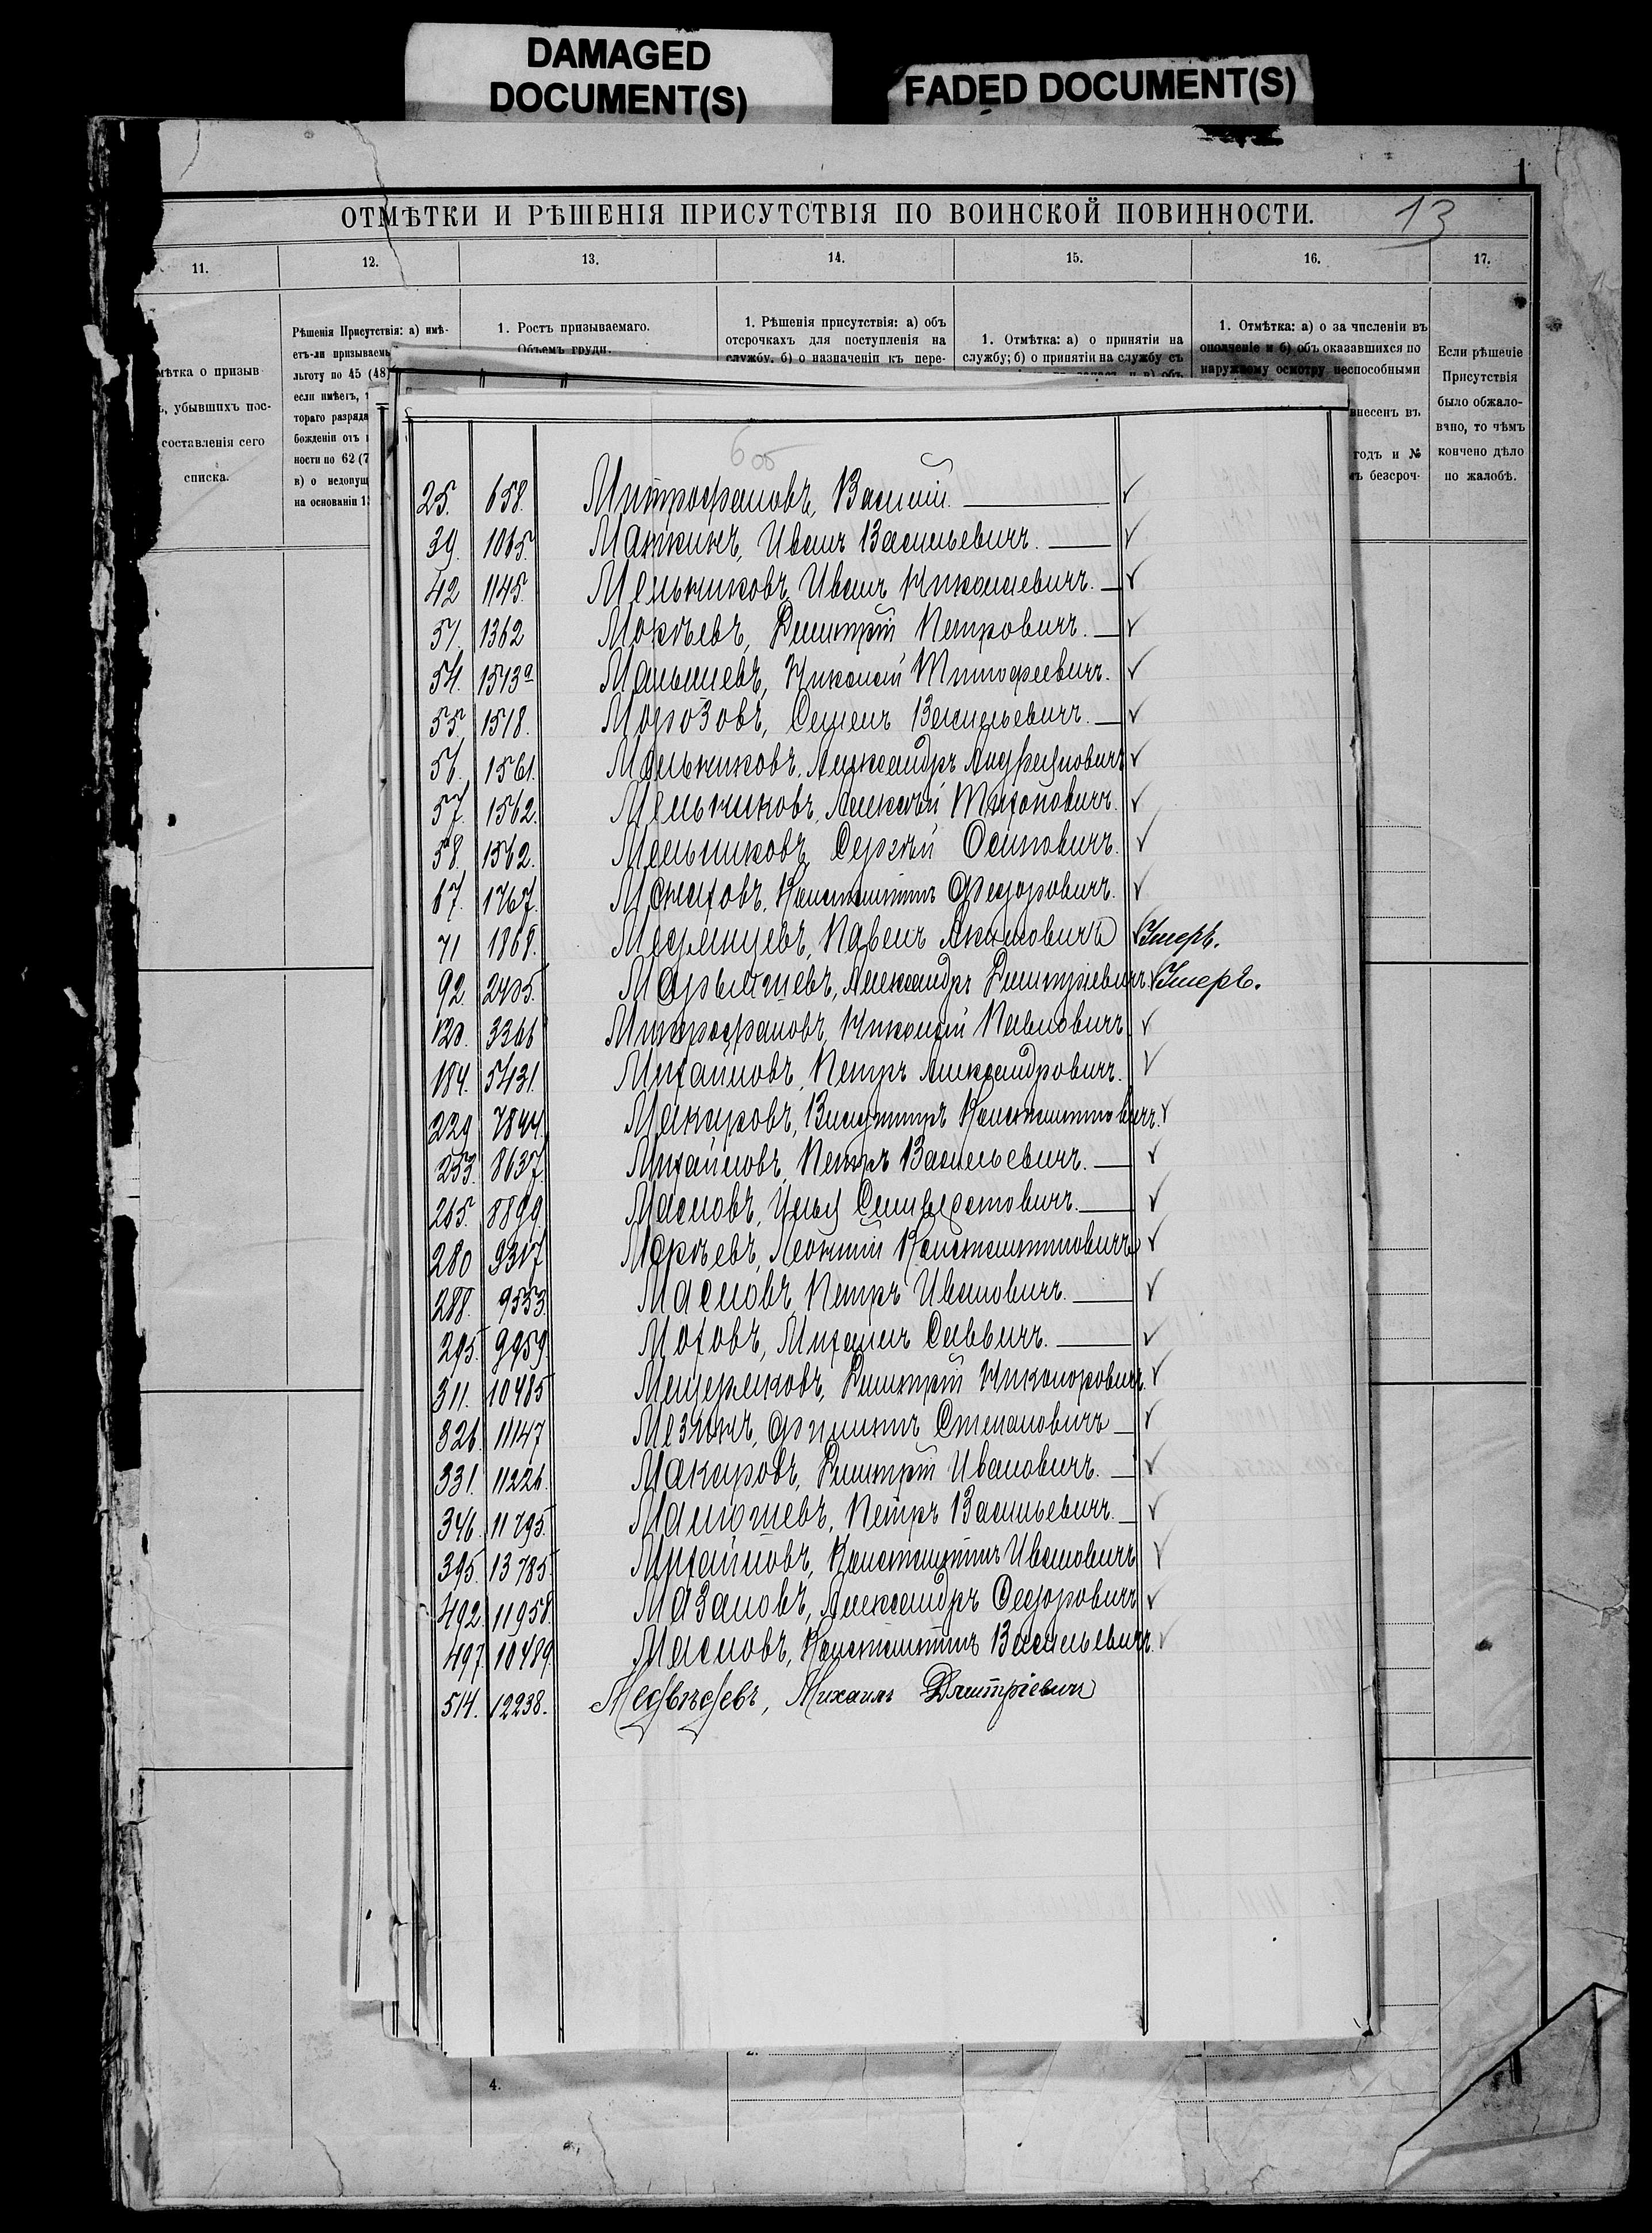 DAMAGED
DOCUMENT(S)
FADED DOCUMENT(S)
ОТМѢТКИ И РѢШЕНІЯ ПРИСУТСТВІЯ ПО ВОИНСКОЙ ПОВИННОСТИ. 13
11. 12. 13. 14. 15. 16. 17.
мѣтка о призыв
убывшихъ пос-
составленія сего
списка.
Рѣшенія Присутствія: а) имѣ-
етъ-ли призываемы
льготу по 45 (48)
если имѣетъ,
тораго разряда
божденіи отъ
ности по 62 (7
в) о недопущ
на основаніи 1
1. Ростъ призываемаго.
Объемъ груди.
1. Рѣшенія присутствія: а) объ
отсрочкахъ для поступленія на
службу, б) о назначеніи къ пере-
1. Отмѣтка: а) о принятіи на
службу; б) о принятіи на службу съ
1. Отмѣтка: а) о за численіи въ
ополченіе и б) объ оказавшихся по
наружному осмотру неспособными
внесенъ въ
годъ и №
безсроч-
Если рѣшеніе
Присутствія
было обжало-
вано, то чѣмъ
кончено дѣло
по жалобѣ.
25. 658. Митрофановъ, Василій. ✓
39. 1065. Маткинъ, Иванъ Васильевичъ. ✓
42 1145. Мельниковъ, Иванъ Николаевичъ. ✓
51. 1362 Мокѣевъ, Димитрій Петровичъ. ✓
54. 1513а Малышевъ, Николай Тимофеевичъ. ✓
55. 1518. Морозовъ, Семенъ Васильевичъ. ✓
56. 1561. Мельниковъ, Александръ Андреяновичъ ✓
57. 1562. Мельниковъ, Алексѣй Тихоновичъ. ✓
58. 1562. Мельниковъ, Сергѣй Осиповичъ. ✓
67. 1767. Монаховъ, Константинъ Федоровичъ. ✓
71 1868. Павелъ Акимовичъ ✓ Умеръ.
92. 2405. Александръ Димитріевичъ. ✓ Умеръ.
120. 3366 Митрофановъ, Николай Павловичъ. ✓
184. 5431. Михайловъ, Петръ Александровичъ. ✓
229 7844. Макаровъ, Владиміръ Константиновичъ. ✓
253. 8637. Михайловъ, Петръ Васильевичъ. ✓
265. 8899. Масловъ, Илья Селиверстовичъ. ✓
280 9317 Мокѣевъ, Леонтій Константиновичъ ✓
288. 9553. Масловъ, Петръ Ивановичъ. ✓
295. 9959. Моховъ, Михаилъ Саввичъ. ✓
311. 10485 Мещеряковъ, Димитрій Никоноровичъ. ✓
326. 11147 Мезинъ, Филиппъ Степановичъ ✓
331. 11226. Макаровъ, Димитрій Ивановичъ. ✓
346. 11795. Малютевъ, Петръ Васильевичъ. ✓
395. 13785. Михайловъ, Константинъ Ивановичъ ✓
492. 11958. Мазановъ, Александръ Федоровичъ ✓
497. 10489. Масловъ, Константинъ Васильевичъ. ✓
514. 12238. Медвѣдевъ, Михаилъ Дмитріевичъ
4.